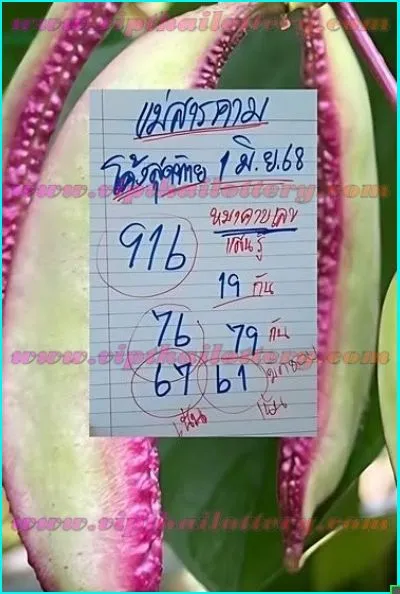 www.vipthailottery.com
แม่สารคาม
โค้งสุดท้าย 1 มิ.ย.68
หมาคาบเลข
แสนรู้
916
19 กัน
76 79 กัน
www.vipthailottery.com
67 61
เน้น เน้น
www.vipthailottery.com